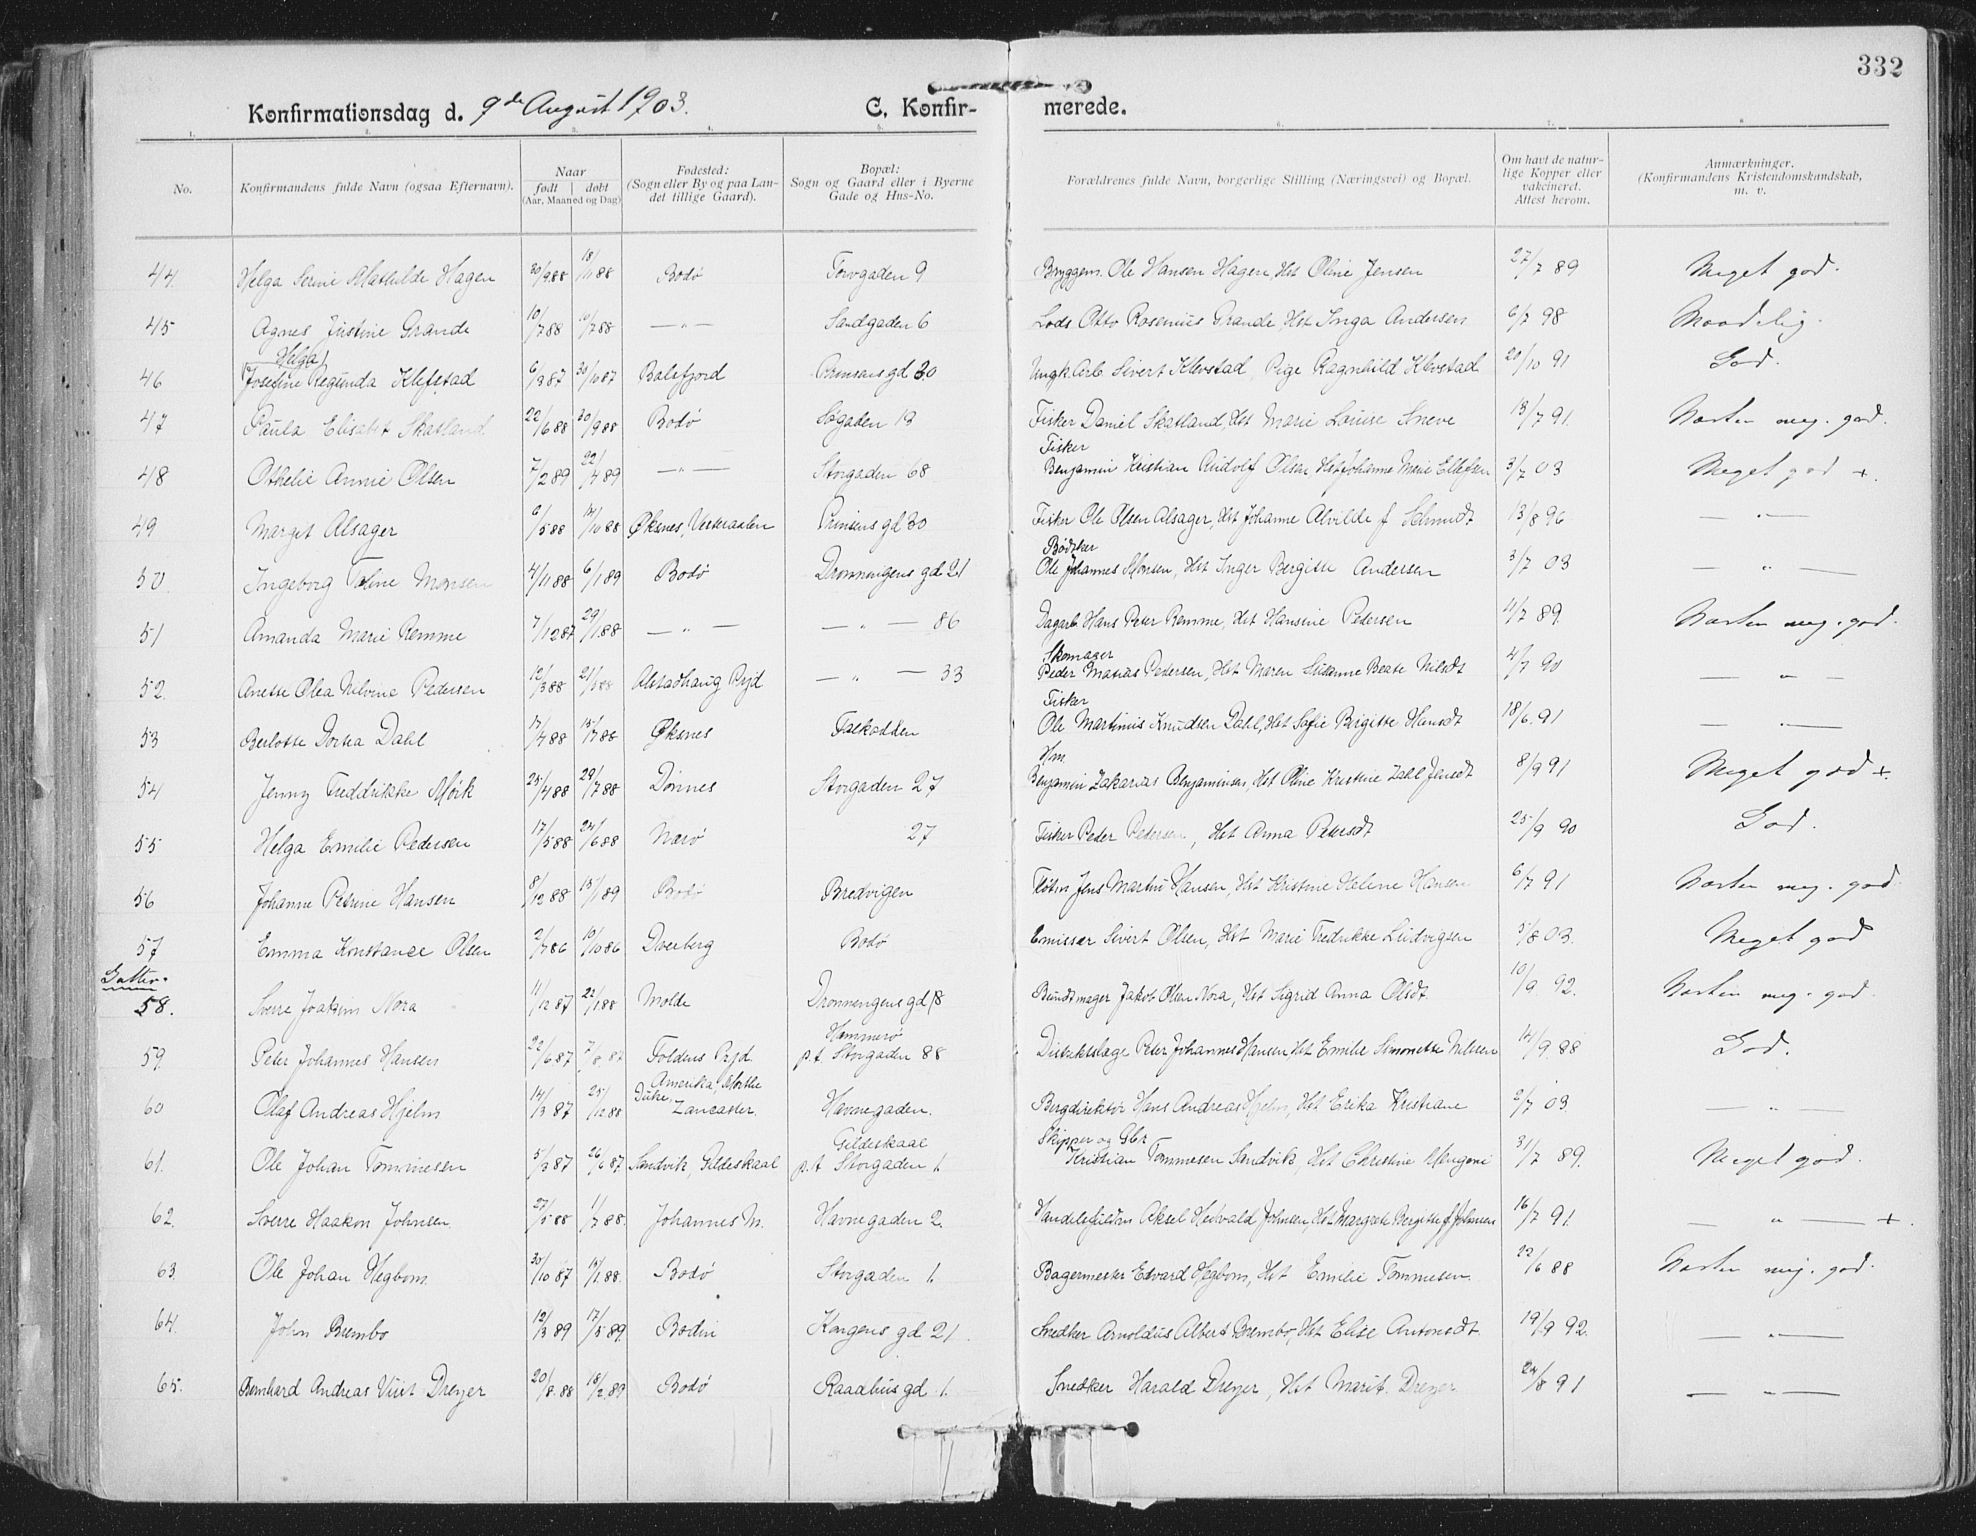 332
Konfirmationsdag d. 9de August 1903. C. Konfirmerede.
1. 2. 3. 4. 5. 6. 7. 8.
No. Konfirmandens fulde Navn (ogsaa Efternavn). Naar født døbt (Aar, Maaned og Dag) Fødested: (Sogn eller By og paa Landet tillige Gaard). Bopæl: Sogn og Gaard eller i Byerne Gade og Hus-No. Forældrenes fulde Navn, borgerlige Stilling (Næringsvei) og Bopæl. Om havt de naturlige Kopper eller vakcineret. Attest herom. Anmærkninger. (Konfirmandens Kristendomskundskab, m. v.
44. Helga Serine Mathilde Hagen 30/9 88 18/11 88 Bodø Torvgaden 9 Bryggem. Ole Hansen Hagen, Hst Oline Jensen 27/7 89 Meget god.
45 Agnes Justine Grande 10/7 88 10/7 88 — " — Sandgaden 6 Lods Otto Rosenius Grande, Hst Inga Andersen 6/7 98 Maadelig.
46 Helga Josefine Regunda Klefstad 6/9 87 30/10 87 Balsfjord Prinsens gd 30 Ungk. Arb. Sivert Klevstad, Pige Ragnhild Klevstad 20/10 91 God.
47 Paula Elisabet Skatland 22/6 88 30/9 88 Bodø Søgaden 19 Fisker Daniel Skatland, Hst Marie Louise Sneve 13/7 91. Næsten meg. god.
48 Othelie Annie Olsen 7/2 89 22/4 89 — " — Storgaden 68 Fisker Benjamin Kristian Rudolf Olsen Hst Johanne Marie Ellefsen 3/7 03 Meget god +.
49 Marget Alsager 6/5 88 14/10 88 Øksnes, Vesteraalen Prinsens gd 30 Fisker Ole Olsen Alsager, Hst Johanne Alvilde f Schmidt 13/8 96 — " —
50. Ingeborg Toline Monsen 4/11 88 6/1 89 Bodø Dronningens gd 21 Bødker Ole Johannes Monsen, Hst Inger Bergitte Andersen 3/7 03 — " —
51 Amanda Marie Remme 7/12 87 29/1 88 — " — — " — 86 Dagarb. Hans Peter Remme, Hst Hansine Pedersen 4/7 89. Næsten meg. god.
52. Anette Olea Nilvine Pedersen 12/3 88 21/ 88 Alstadhaug Pgjd — " — 33 Skomager Peder Matias Pedersen, Hst Maren Susanne Beate Nilsdt 4/7 90 — " —
53 Berlotte Dortea Dahl 17/4 88 15/7 88 Øksnes Falkodden Fisker Ole Martinus Knudsen Dahl, Hst Sofie Birgitte Hansdt 18/6. 91 — " —
54 Jenny Fredrikke Mørk 25/4 88 29/7 88 Dønnes Storgaden 27 Hm Benjamin Zakarias Benjaminsen, Hst Oline Kristine Zahl Jensdt 8/9 91 Meget god +.
55 Helga Emilie Pedersen 17/5 88 24/6 88 Nærø 27 Fisker Peder Pedersen, Hst Anna Petersdt 25/9 90 God.
56 Johanne Petrine Hansen 8/12 88 13/1 89 Bodø Bredvigen Fløtm Jens Martin Hansen, Hst Kristine Helene Hansen 6/7 91 Næsten meg. god
57 Emma Konstance Olsen 2/7 86 10/10 86 Dverberg Bodø Emissær Sivert Olsen, Hst Marie Fredrikke Ludvigsen 5/8 03. Meget god
Gutter.
58. Sverre Joakim Nora 11/12 87 22/1 88 Molde Dronningens gd 18 Bundtmager Jakob Olsen Nora, Hst Sigrid Anna Olsdt. 10/9 92. Næsten meg. god.
59. Peter Johannes Hansen 22/6 87 7/8 87 Foldens Pgjd. Hammerø p.t. Storgaden 88 Distriktslæge Peter Johannes Hansen Hst Emilie Simonette Nilssen 14/9 88 God.
60 Olaf Andreas Hjelm 14/3 87 25/12 88 Amerika, Duke, Lancaster. Havnegaden. Bergdirektør Hans Andreas Hjelm, Hst Erika Kristiane 2/7 03. — " —
61. Ole Johan Tommesen 5/3 87 26/6 87 Sandvik, Gildeskaal Gildeskaal p.t Storgaden 1. Skipper og Gbr Kristian Tommesen Sandvik, Hst Christine 31/7 89. Meget god.
62. Sverre Haakon Johnsen. 27/5 88 1/7 88. Johannes M. Havnegaden 2. Aksel Hedvald Johnsen, Hst Margrete Bergitte f. Johnsen 16/7 91. — " — +.
63. Ole Johan Hegbom 30/10 87 15/1 88. Bodø Storgaden 1. Bagermester Edvard Hegbom, Hst Emilie Tommesen 22/6 88 Næsten meg. god.
64. John Brembo 12/3 89 17/5 89. Bodin Kongens gd 21. Snedker Arnoldus Albert Brembo, Hst Elise Antonsdt. 19/9 92. — " —
65. Bernhard Andreas Dreyer 20/8. 88 18/2. 89 Bodø Raadhus gd 1. Snedker Harald Dreyer, Hst Marit Dreyer 24/8 91 — " —